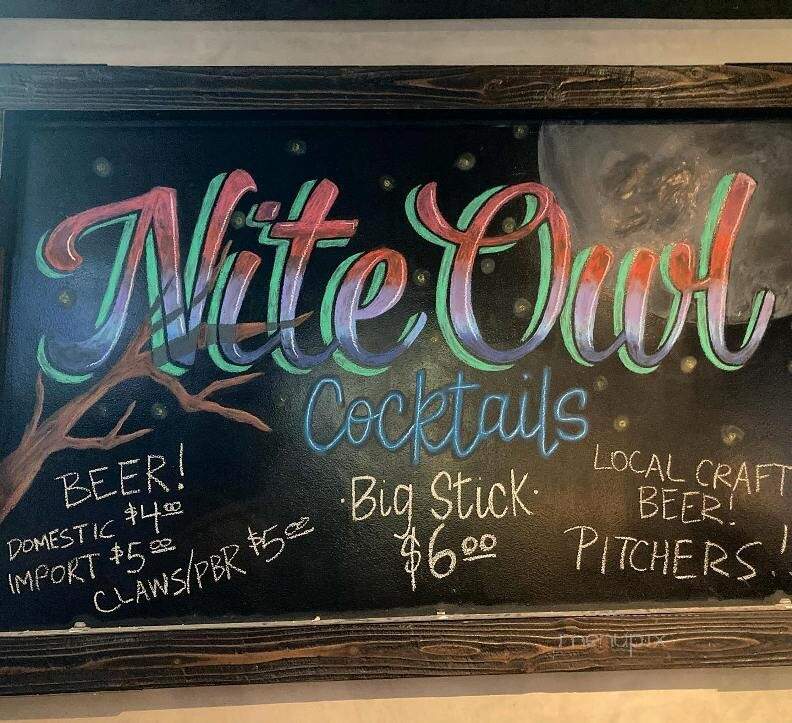 Nite Owl
Cocktails
BEER!
DOMESTIC $4.00
IMPORT $5.00
CLAWS/PBR $5.00
·Big Stick·
$6.00
LOCAL CRAFT
BEER!
PITCHERS!!
menupix